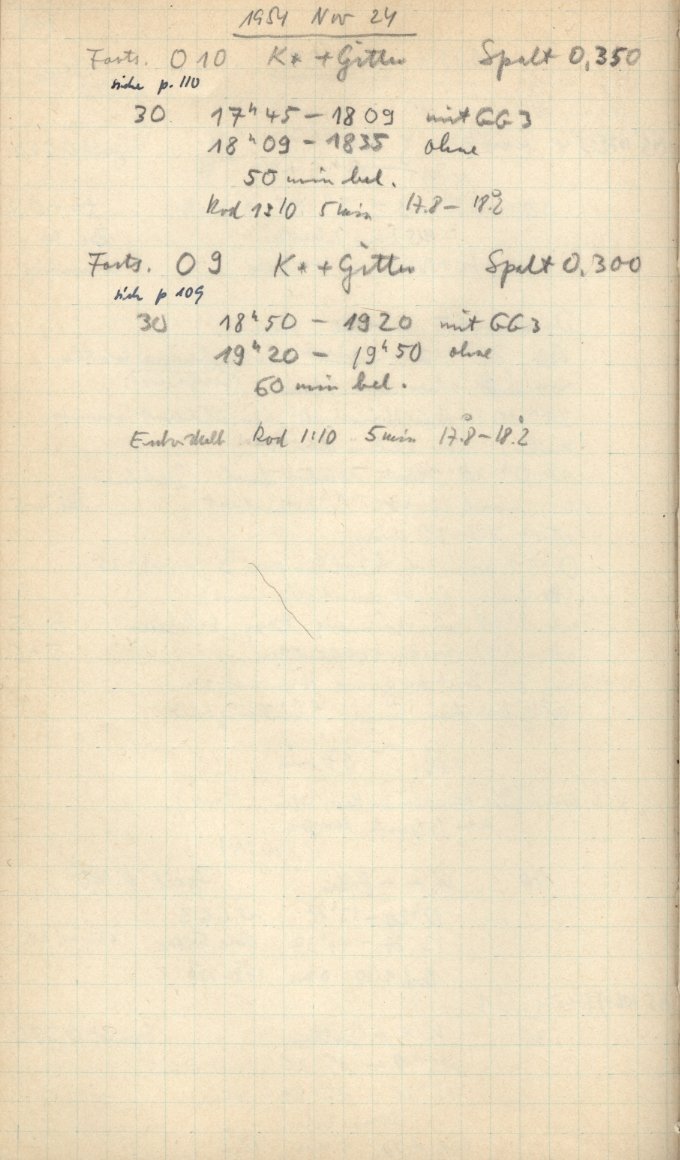 1954 Nov 24
Forts. O 10 K* + Gitter Spalt 0,350
siehe p. 110
30 17ʰ45 – 18 09 mit GG 3
18ʰ09 – 1835 ohne
50 min bel.
Rod 1:10 5 min 17.8 – 18.2
Forts. O 9 K* + Gitter Spalt 0,300
sieh p 109
30 18ʰ50 – 19 20 mit GG 3
19ʰ20 – 19ʰ50 ohne
60 min bel.
Entwickelt Rod 1:10 5 min 17.°8 – 18.°2